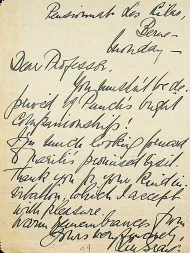 Pensionnat des Lilas
Berne
Monday —
Dear Professor.
You mustn't be de-
prived of
bright
companionship.
I'm much looking forward
to promised visit.
Thank you for your kind in-
vitation, which I accept
with pleasure
warm remembrances from
yours very sincerely,